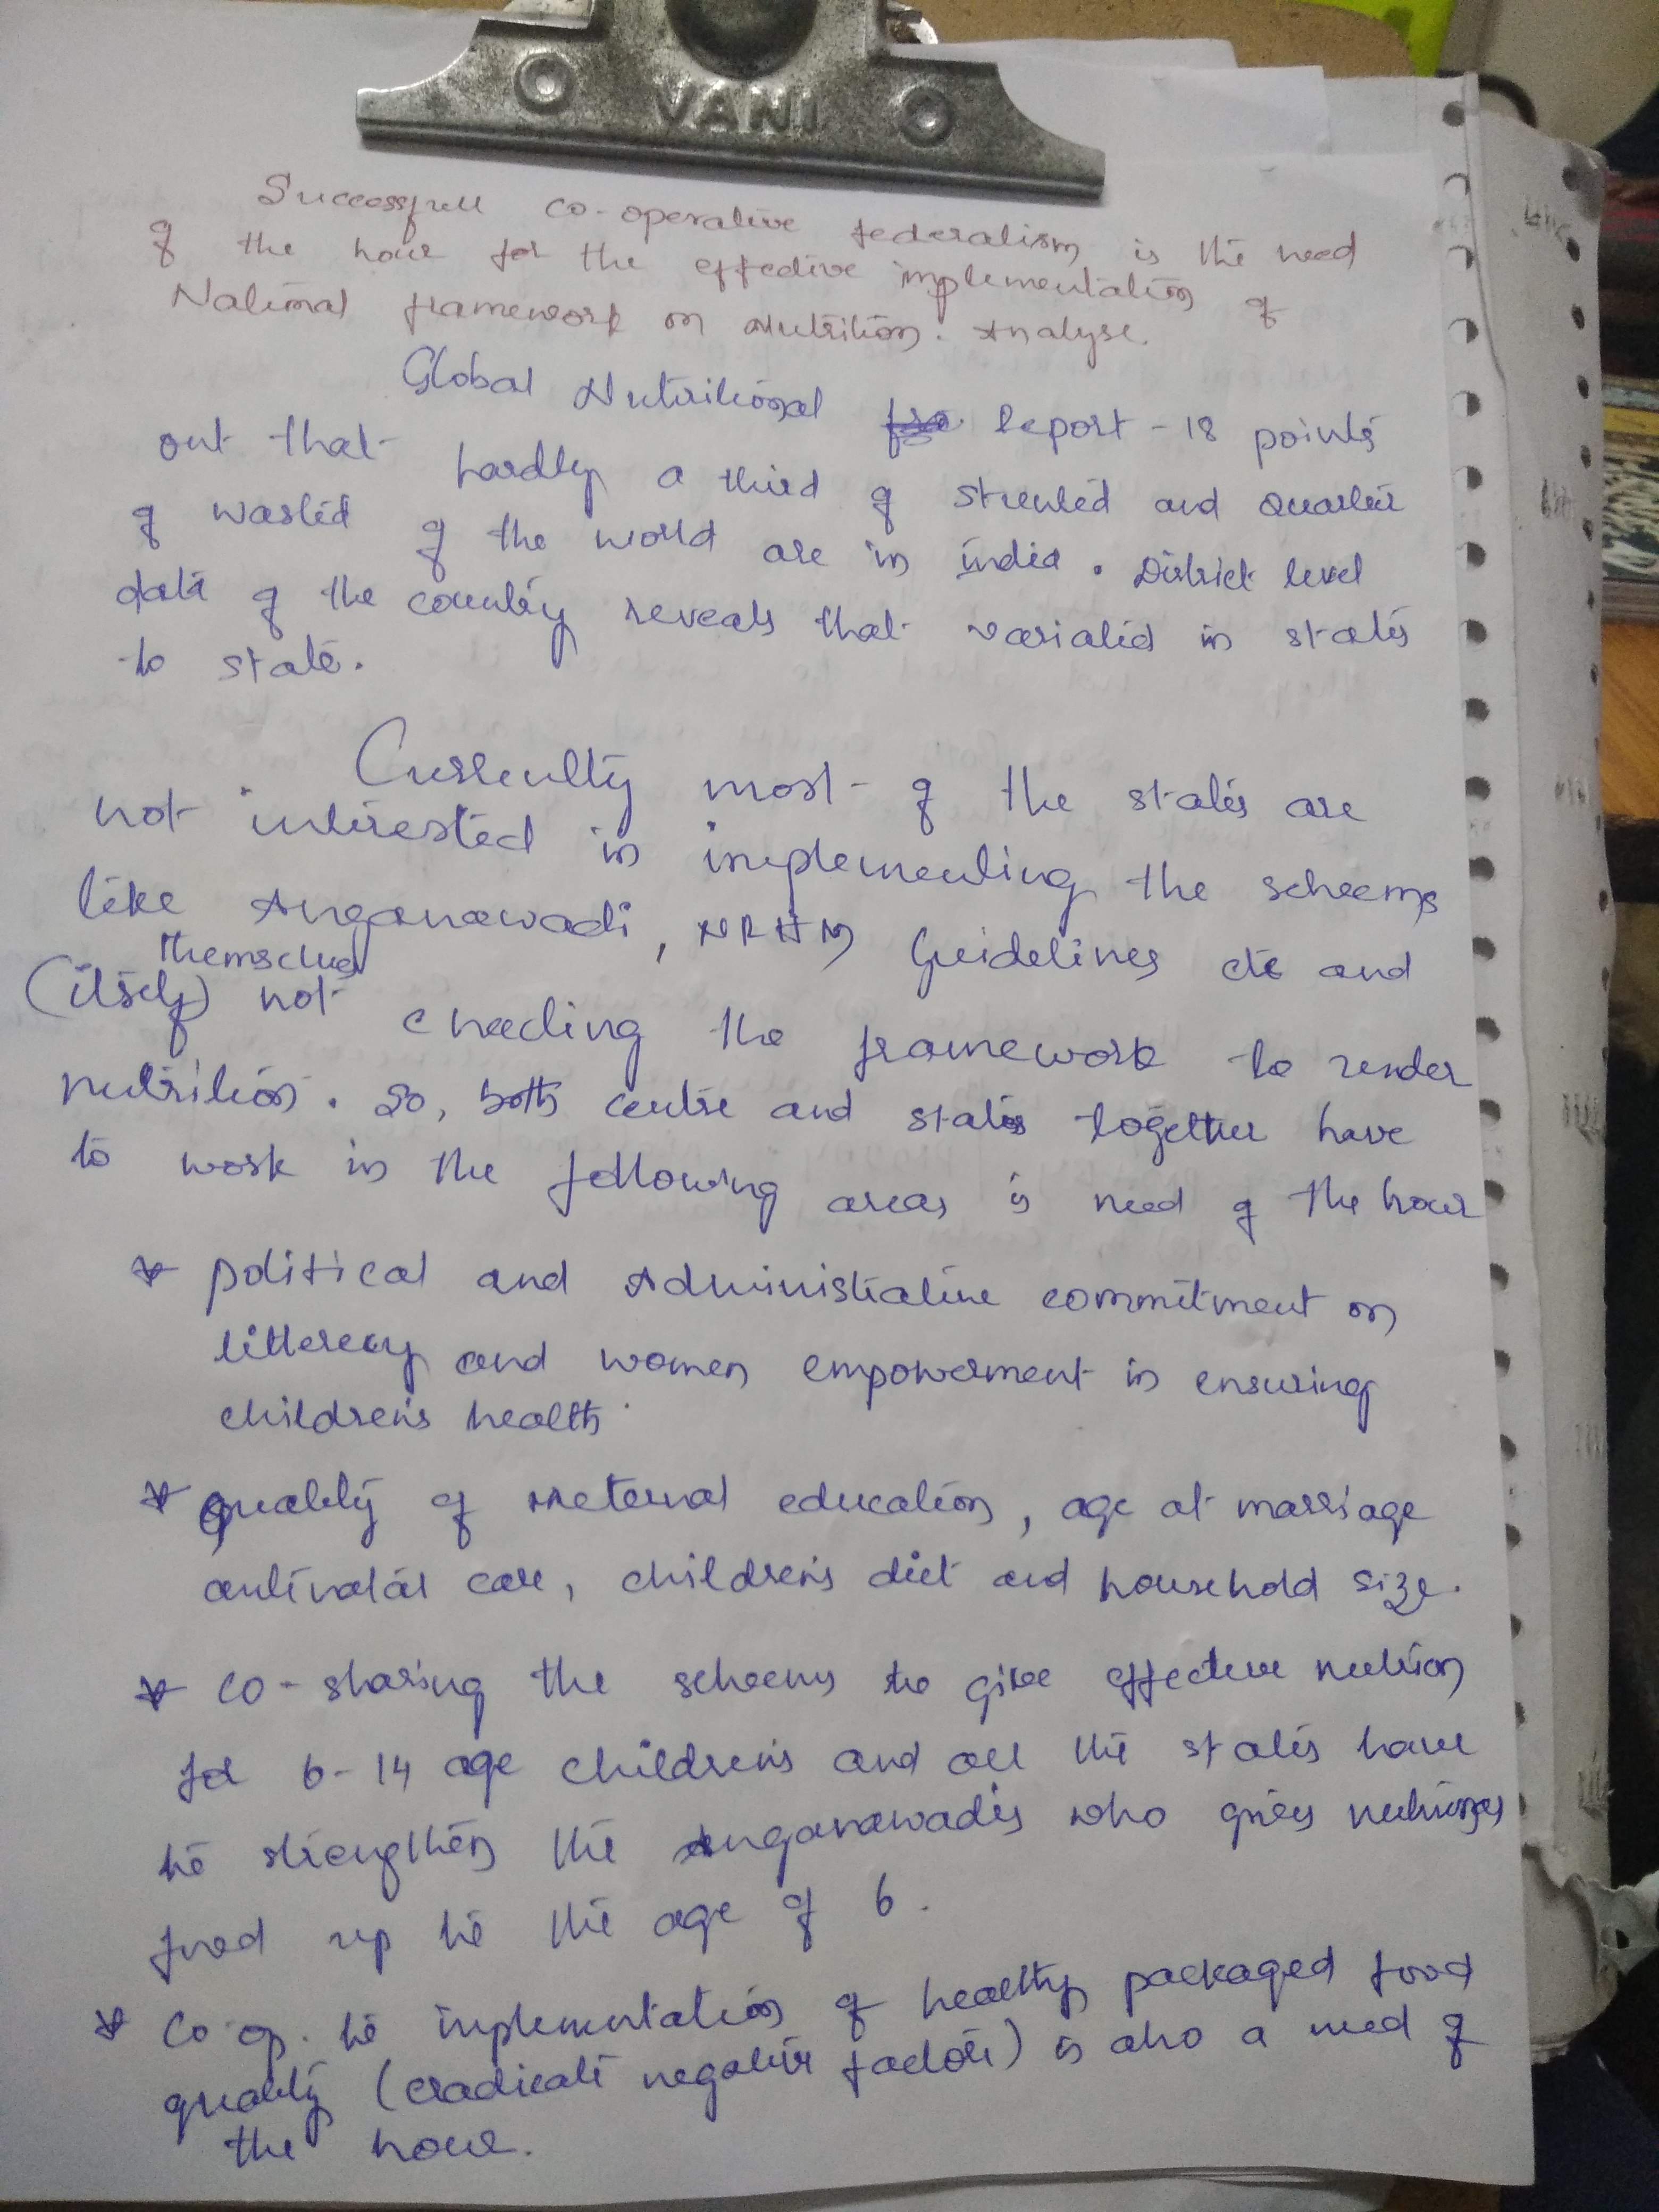 VANI
Successfull co-operative federalism is the need
of the hour for the effective implementation of
National framework on Nutrition. Analyse.
Global Nutritional Report - 18 points
out that hardly a third of stunted and Quarter
of wasted of the world are in india. District level
data of the country reveals that varialed in states
to state.
Currently most of the states are
not interested in implementing the scheems
like Anganawadi, NRHM Guidelines etc and
themselves
(itself) not creating the framework to render
nutrition. So, both centre and states together have
to work in the following areas is need of the hour
* political and Administrative commitment on
litterecy and women empowerment in ensuring
children's health.
* Quality of Maternal education, age at marriage
antinatal care, children's diet and household size.
* co-sharing the scheems to give effective nutrion
for 6-14 age children's and all the states have
to strengthen the Anganawadis who gives nutrious
food up to the age of 6.
* co-op. to implementation of healthy packaged food
quality (eradicate negative factors) is also a need of
the hour.